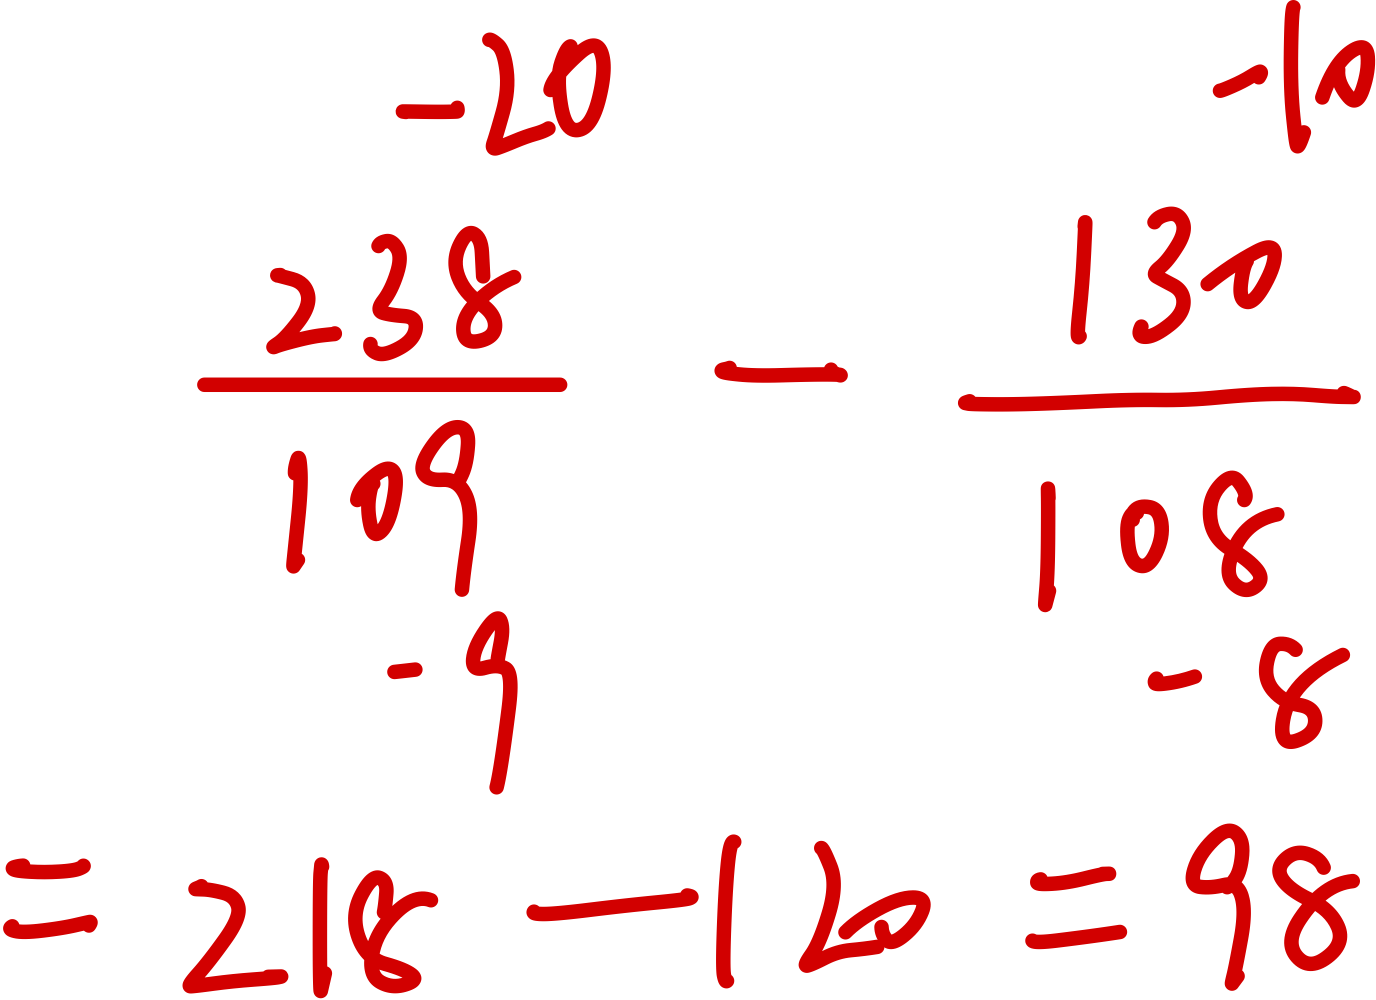 -20 -10
238 - 130
109 108
-9 -8
= 218 - 120 = 98